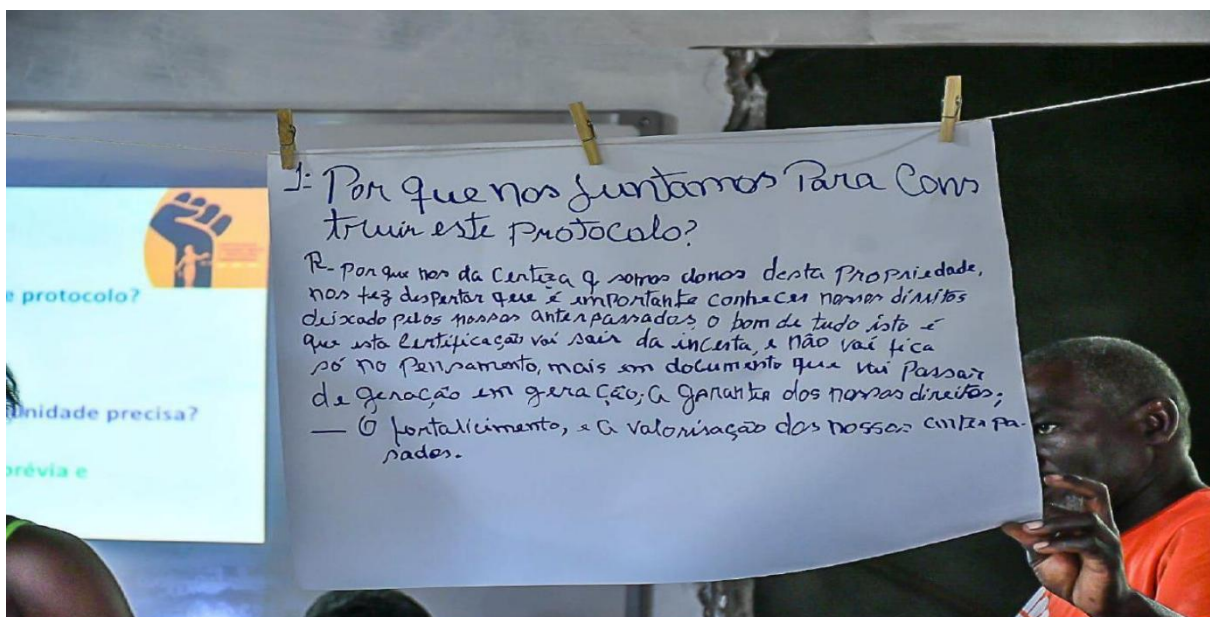 1- Por que nos juntamos Para Cons
truir este Protocolo?
R- Porque nos da Certeza q somos donos desta Propriedade,
nos fez despertar que é importante conhecer nossos direitos
deixado pelos nossos antepassados, o bom de tudo isto é
que esta Certificação vai sair da incerta, e não vai fica
só no Pensamento, mais em documento que vai Passar
de geração em geração; a garantia dos nossos direitos;
— O fortalicimento, e a valorisação dos nossos antepa-
sados.
e protocolo?
unidade precisa?
prévia e